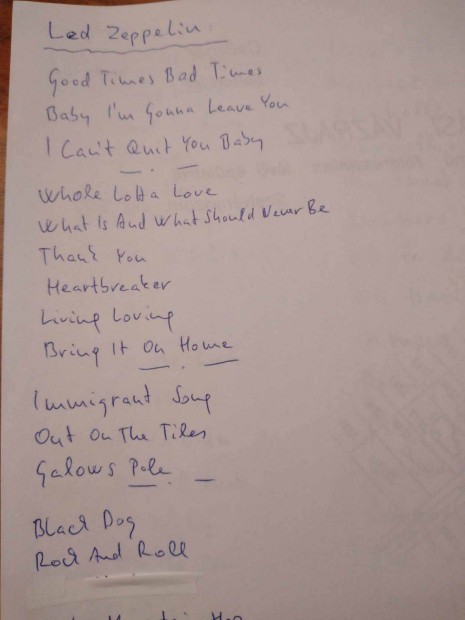 Led Zeppelin:
Good Times Bad Times
Baby I'm Gonna Leave You
I Can't Quit You Baby
Whole Lotta Love
What Is And What Should Never Be
Thank You
Heartbreaker
Living Loving
Bring It On Home
Immigrant Song
Out On The Tiles
Galows Pole
Black Dog
Rock And Roll